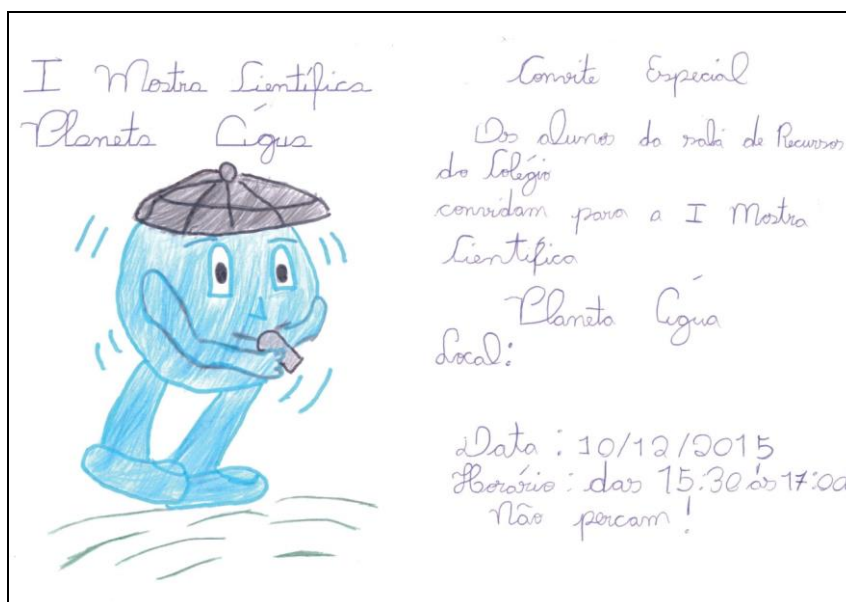 I Mostra Científica
Planeta Água
Convite Especial
Os alunos da sala de Recursos
do Colégio
convidam para a I Mostra
Científica
Planeta Água
Local:
Data: 10/12/2015
Horário: das 15:30 às 17:00
Não percam!